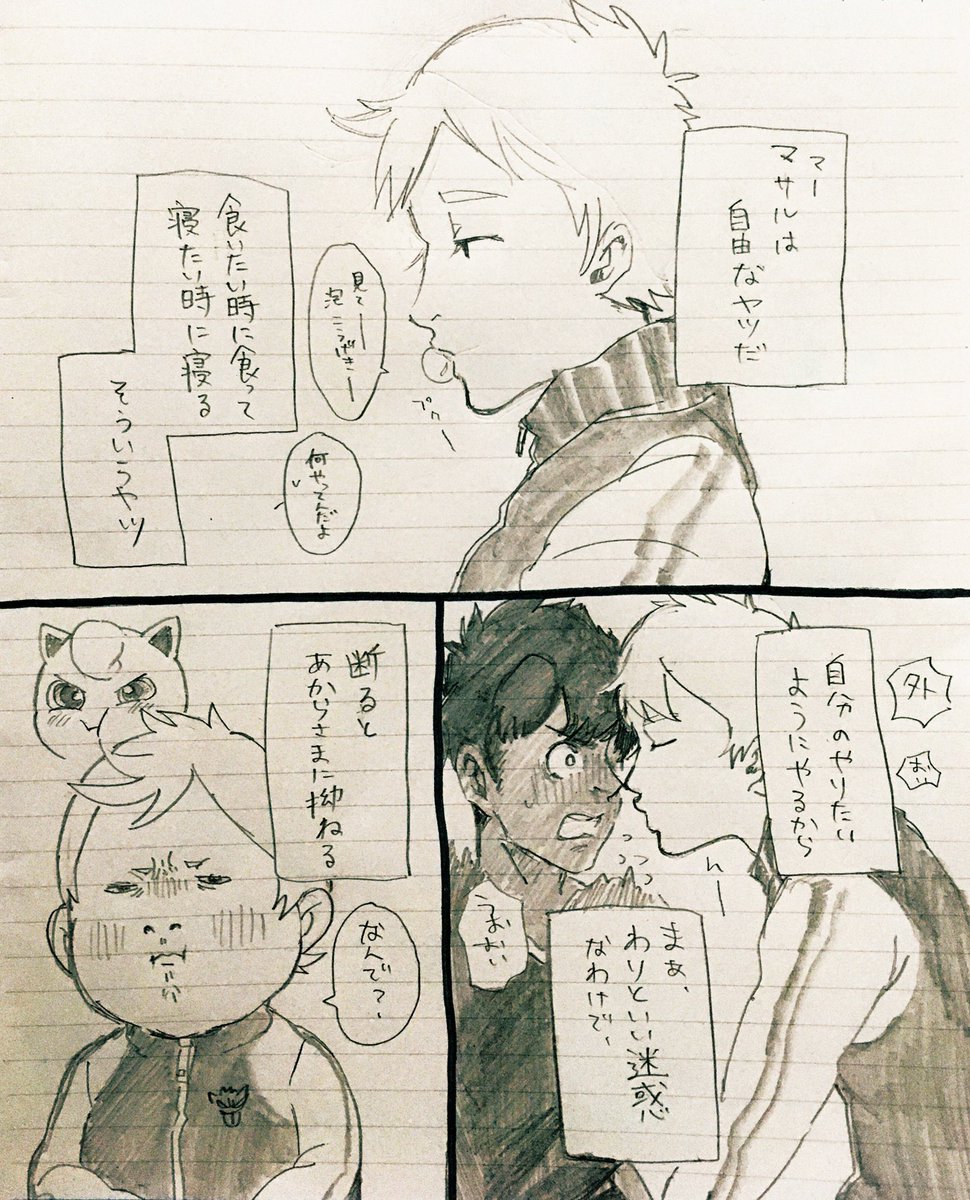 マー
マサルは
自由なヤツだ
見てーー
泡こうげきー
プクー
何やってんだよ
食いたい時に食って
寝たい時に寝る
そういうヤツ
外
ばい
自分のやりたい
ようにやるから
んー
うおおい
まぁ、
わりといい迷惑
なわけで、
断ると
あからさまに拗ねる
なんで？